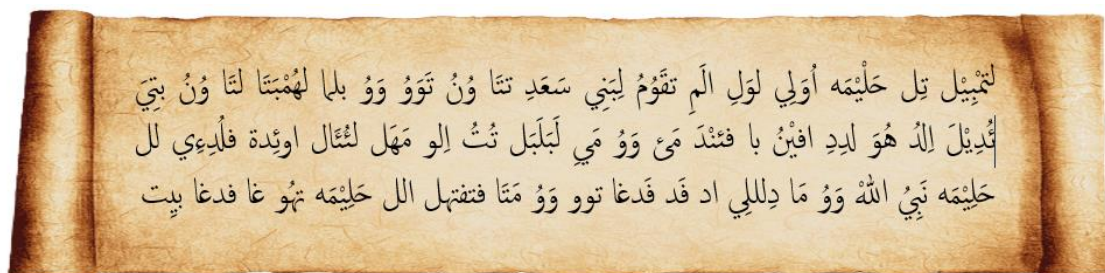 لتمْبِيْل تِل حَلْيْمَه اُوَلِي لوَلِ الَمِ تقَوُمُ لِبَنِي سَعَدِ تتَا وُنُ تَوَوُ وَوُ بلما لهُمْبَتَا لتَا وُنُ بتِيَ
ئُدِيْلَ اِلدُ هُوَ لدِدِ افيْنُ با فئنْدَ مَئ وَوُ مَيِ لَبَلَبَل تُتُ اِلو مَهَل لئُئَال اوئِدة فلُدِءِي لل
حَلِيْمَه نَبِيُ اللهْ وَوُ مَا دِلللِي اد فَد فَدغا توو وَوُ مَتَا فتفتهل الل حَلِيْمَه تهُو غا فدغا بيِت